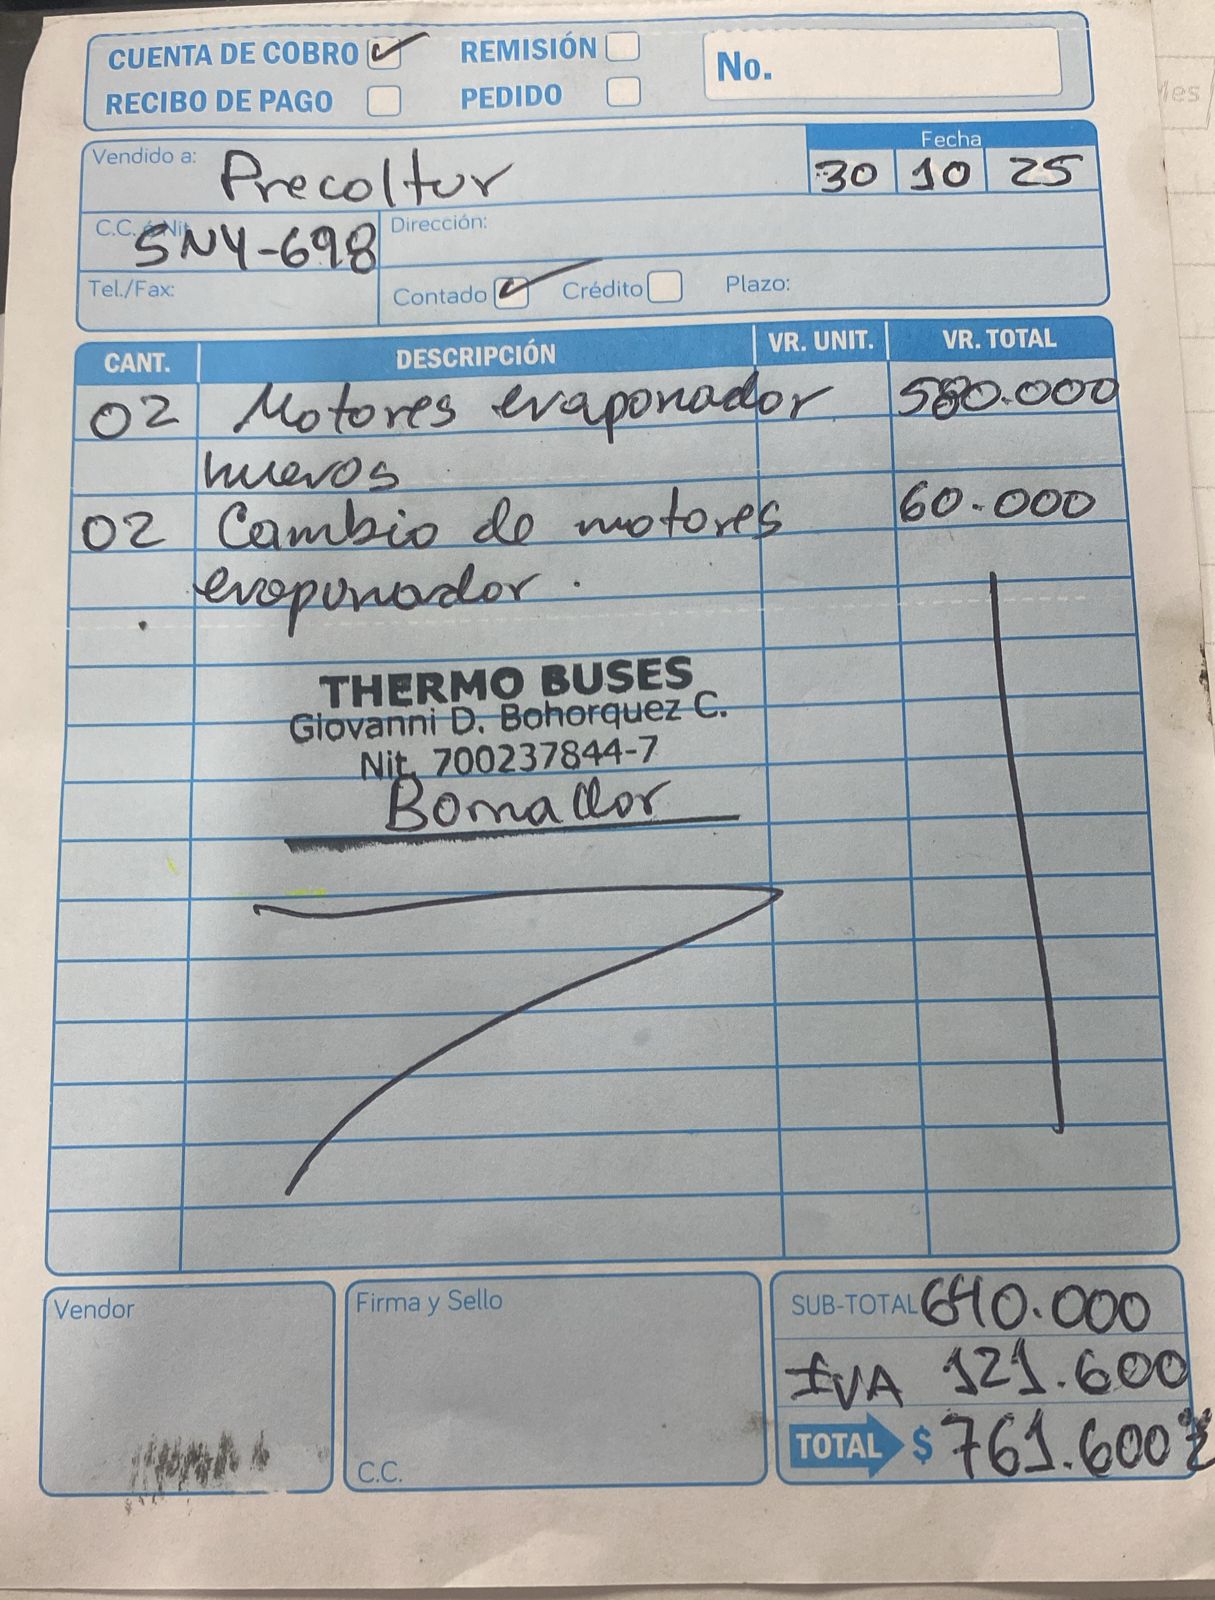 CUENTA DE COBRO
REMISIÓN
No.
RECIBO DE PAGO
PEDIDO
Vendido a: Precoltur
Fecha
30 10 25
C.C. ó Nit. SNY-698
Dirección:
Tel./Fax:
Contado Crédito Plazo:
CANT. DESCRIPCIÓN VR. UNIT. VR. TOTAL
02 Motores evaporador 580.000
nuevos
02 Cambio de motores 60.000
evaporador.
THERMO BUSES
Giovanni D. Bohorquez C.
Nit. 700237844-7
Vendor
Firma y Sello
C.C.
SUB-TOTAL 640.000
IVA 121.600
TOTAL $ 761.600